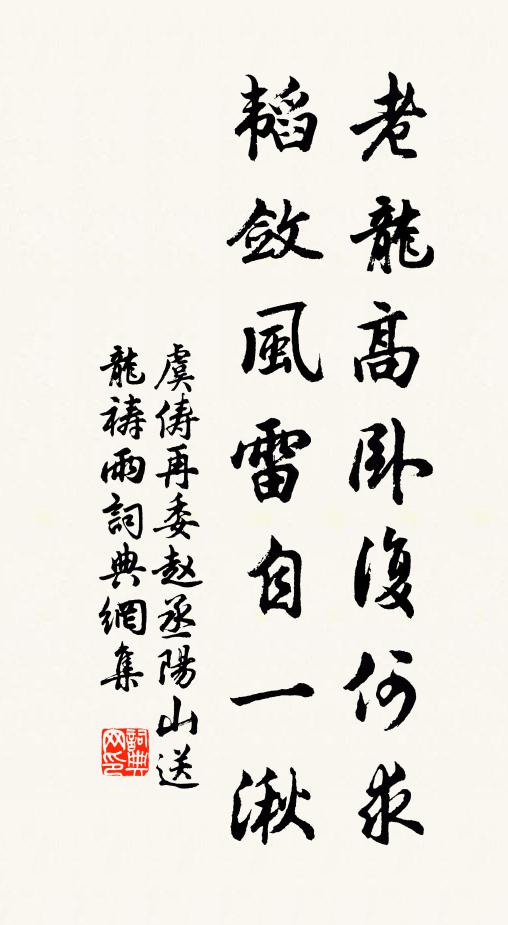 老龍高卧復何求
韜斂風雷自一湫
虞儔再委赵丞陽山送
龍禱雨詞典網集
詞典网印